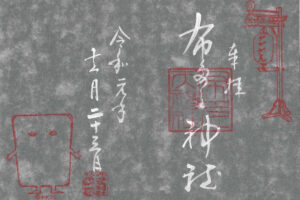 奉拝
布多天神社
令和元年
十一月二十三日